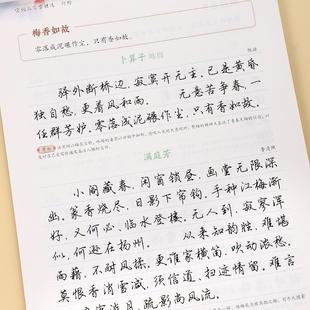 梅香如故
零落成泥碾作尘，只有香如故。
卜算子 咏梅
陆游
驿外断桥边，寂寞开无主，已是黄昏
独自愁，更着风和雨。 无意苦争春，一
任群芳妒，零落成泥碾作尘，只有香如故。
满庭芳
李清照
小阁藏春，闲窗锁昼，画堂无限深
幽。篆香烧尽，日影下帘钩。手种江梅渐
好，又何必、临水登楼。无人到，寂寥浑
似，何逊在扬州。 从来知韵胜，难堪
雨藉，不耐风揉。更谁家横笛，吹动浓愁。
莫恨香消雪减，须信道、扫迹情留。难言
疏影尚风流。